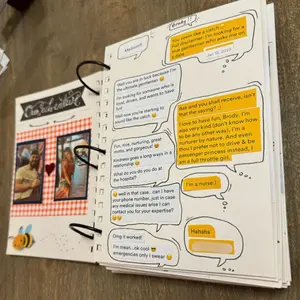 Brody
You seem like a catch...
Full disclaimer, I'm looking for a
true gentleman who asks me on
a date.
Jan 15, 2023
Well you are in luck because I'm
the ultimate gentleman 😉
I'm looking for someone who is
loyal, driven, and wants to have
fun!
Well now you're starting to
sound like the catch 😂
Ask and you shall receive, isn't
that the saying? ;)
I love to have fun, Brody. I'm
also very kind (don't know how
to be any other way), I'm a
nurturer by nature. And even
thou I prefer not to drive & be
passenger princess instead, I
am a full throttle girl.
Fun, nice, nurturing, good
motto, and gorgeous! 😍
Kindness goes a long ways in a
relationship 😊
What do you do you do at
the hospital?
I'm a nurse:)
😊 well in that case.. can I have
your phone number, just in case
any medical issues arise I can
contact you for your expertise?
😂😂
Hahaha
Omg it worked!
I'm mean...ok cool 😎
emergencies only I swear 😉